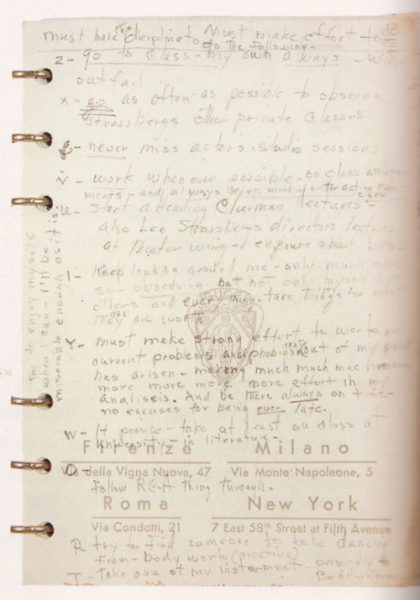 must have the discipline to do the following -
must make effort to do
z - go to class - my own always - without fail
x - go as often as possible to observe
Strassberg's other private classes
g - never miss actors studio sessions
v - work whenever possible - on class assignments
ments - and always keep working on the acting exercises
u - start attending Clurman lectures -
also Lee Strassbergs directors lectures
at theater wing - enquire about both
l - keep looking around me - only much more
so - observing - but not only myself but
others and everything - take things for what
they are worth
y - must make strong effort to work on
current problems and phobias that out of my past
has arisen - making much much much more
more more more more effort in my
analisis. And be there always on time -
no excuses for being ever late.
w - if possible - take at least one class at
university - in literature -
Firenze Milano
Via della Vigna Nuova, 47 Via Monte Napoleone, 5
o - follow RCA thing through.
Roma New York
Via Condotti, 21 7 East 58th Street at Fifth Avenue
p - try to find someone to take dancing
from - body work (creative)
t - take care of my instrument - personally &
try to enjoy myself
when I can - I'll be
miserable enough as it is
GUCCI